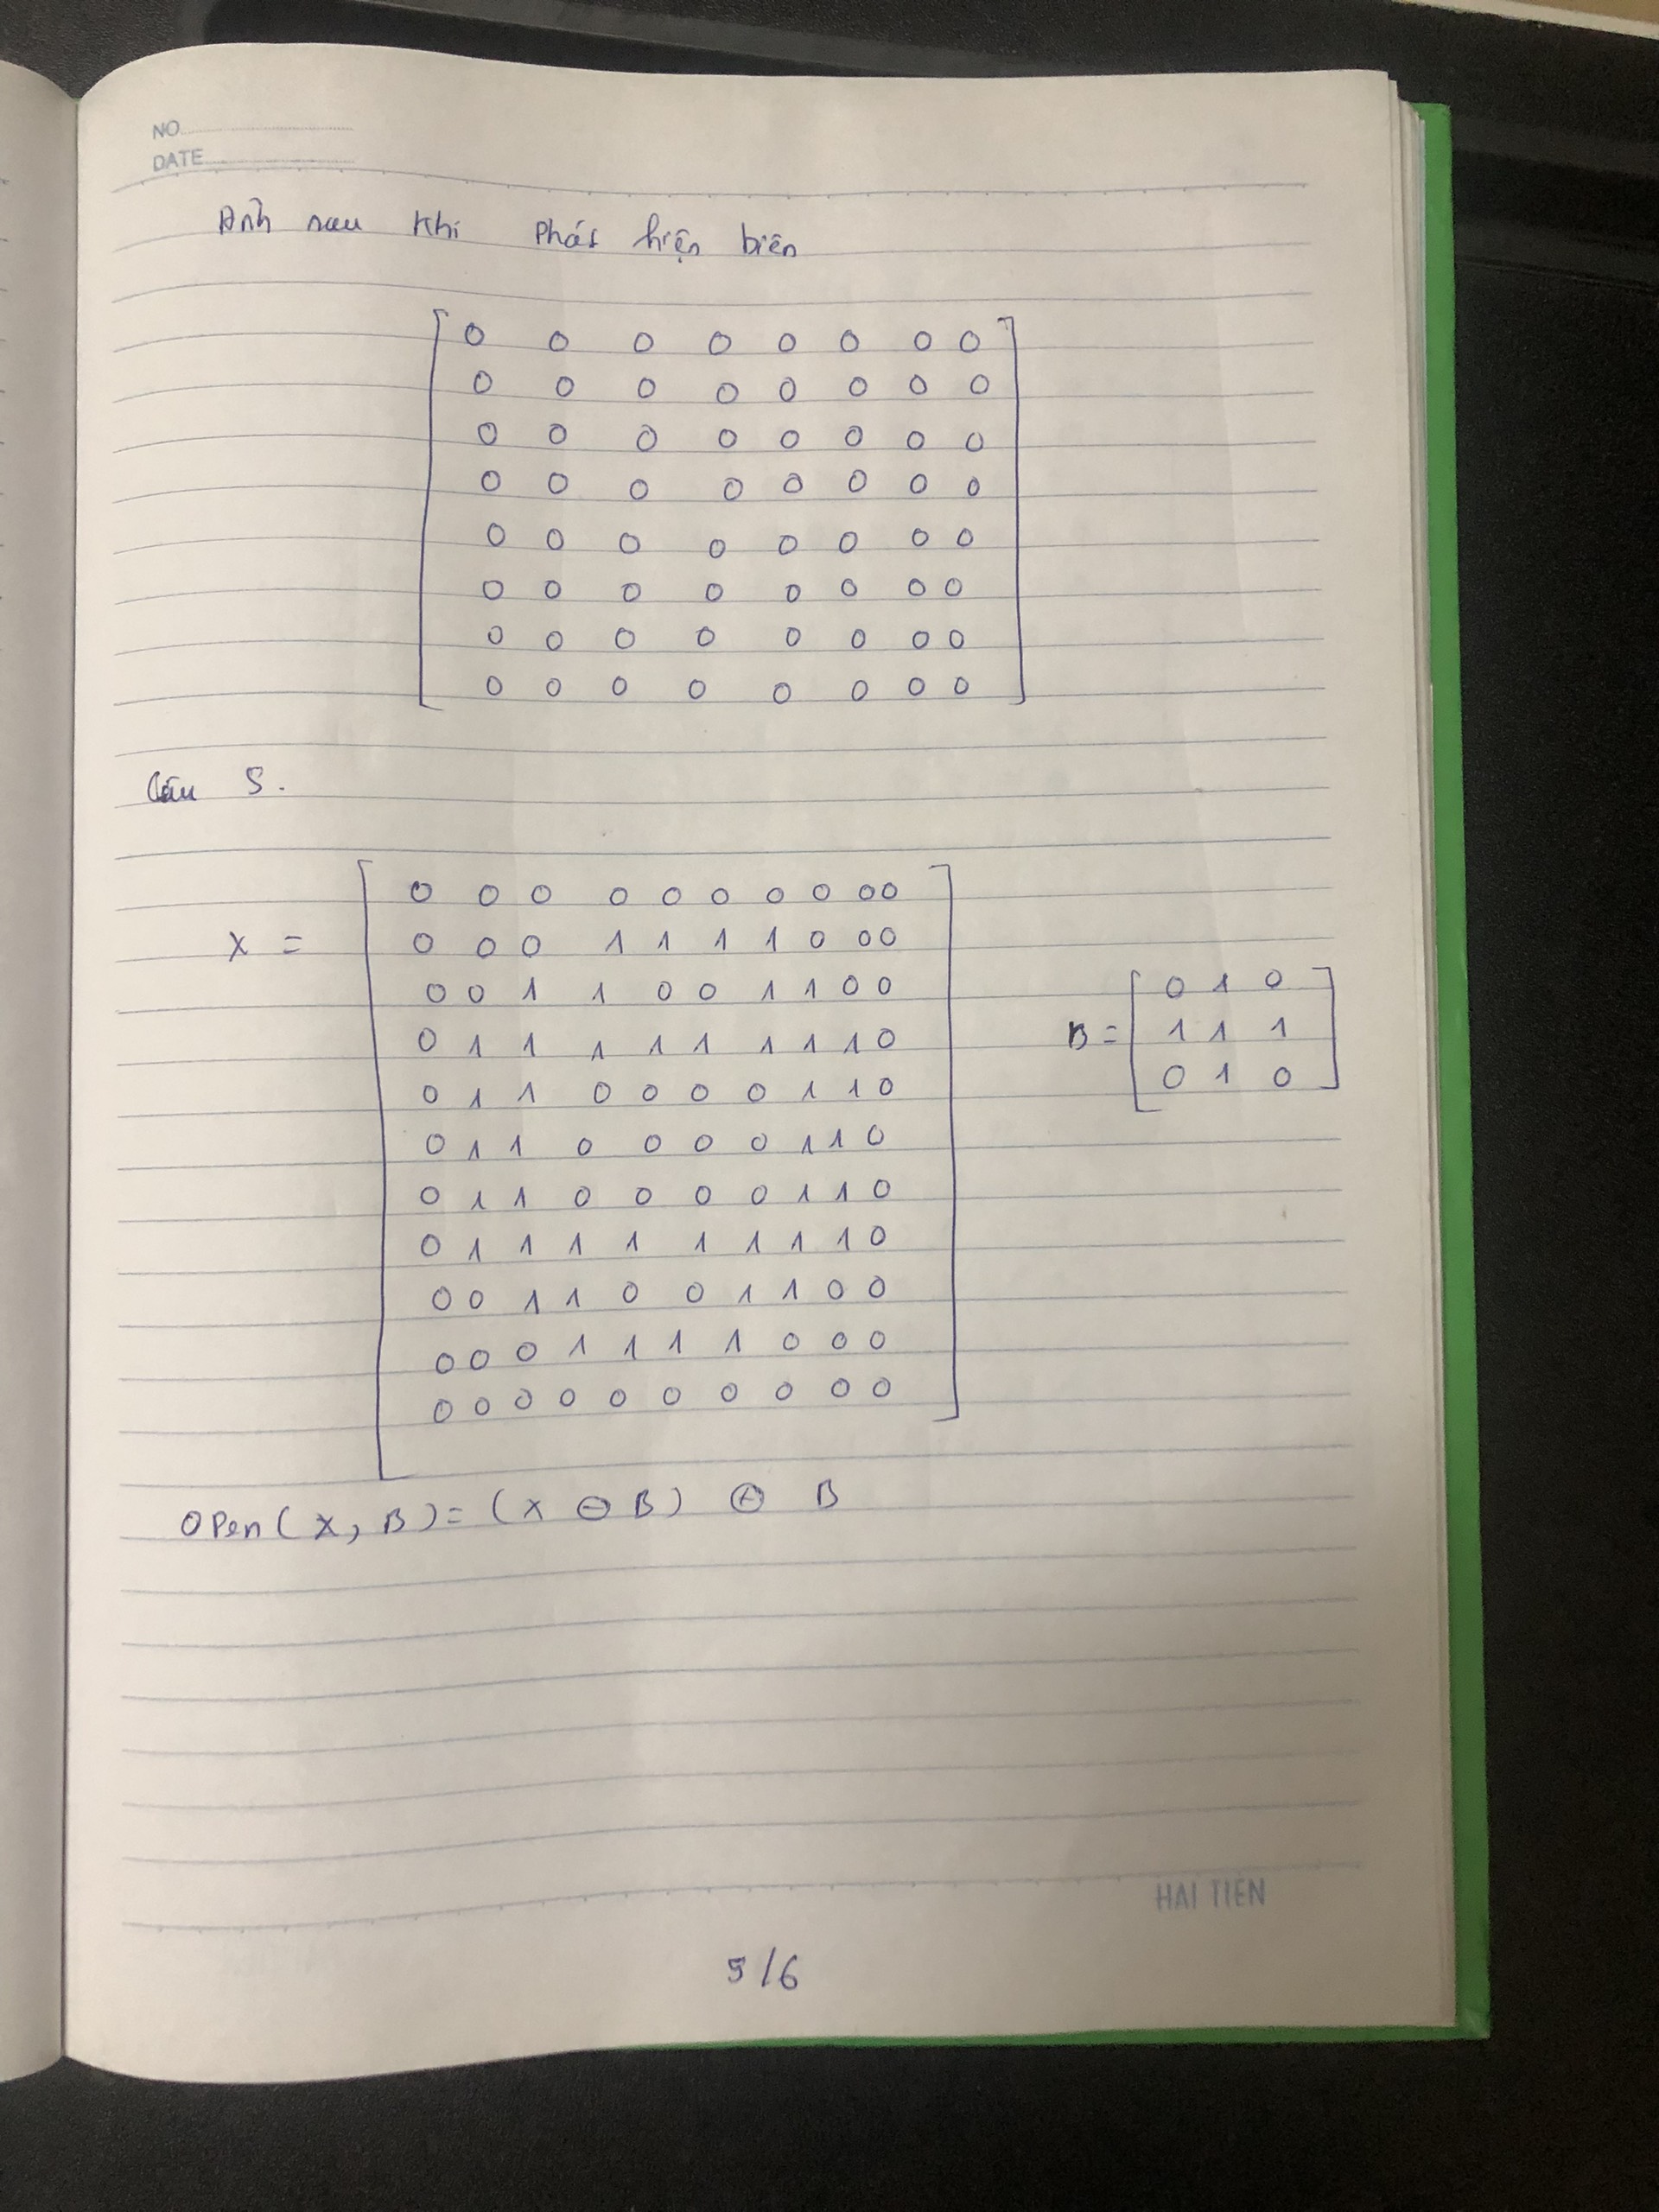 NO
DATE
Ảnh sau khi phát hiện biên
0 0 0 0 0 0 0 0
0 0 0 0 0 0 0 0
0 0 0 0 0 0 0 0
0 0 0 0 0 0 0 0
0 0 0 0 0 0 0 0
0 0 0 0 0 0 0 0
0 0 0 0 0 0 0 0
0 0 0 0 0 0 0 0
Câu 5.
0 0 0 0 0 0 0 0 0 0
X = 0 0 0 1 1 1 1 0 0 0
0 0 1 1 0 0 1 1 0 0 0 1 0
0 1 1 1 1 1 1 1 1 0 B = 1 1 1
0 1 1 0 0 0 0 1 1 0 0 1 0
0 1 1 0 0 0 0 1 1 0
0 1 1 0 0 0 0 1 1 0
0 1 1 1 1 1 1 1 1 0
0 0 1 1 0 0 1 1 0 0
0 0 0 1 1 1 1 0 0 0
0 0 0 0 0 0 0 0 0 0
Open(X, B) = (X ⊖ B) ⊕ B
HẢI TIẾN
5/6